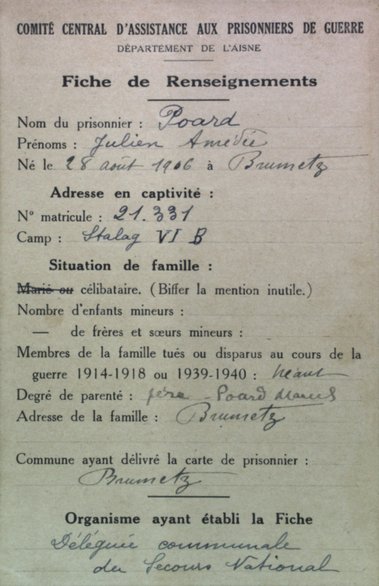 COMITÉ CENTRAL D'ASSISTANCE AUX PRISONNIERS DE GUERRE
DÉPARTEMENT DE L'AISNE
Fiche de Renseignements
Nom du prisonnier : Poard
Prénoms : Julien Amédée
Né le 28 août 1906 à Brumetz
Adresse en captivité :
N° matricule : 21.331
Camp : Stalag VI B
Situation de famille :
Marié ou célibataire. (Biffer la mention inutile.)
Nombre d'enfants mineurs :
— de frères et sœurs mineurs :
Membres de la famille tués ou disparus au cours de la
guerre 1914-1918 ou 1939-1940 : néant
Degré de parenté : père - Poard Marcel
Adresse de la famille : Brumetz
Commune ayant délivré la carte de prisonnier :
Brumetz
Organisme ayant établi la Fiche
Déléguée communale
du Secours National